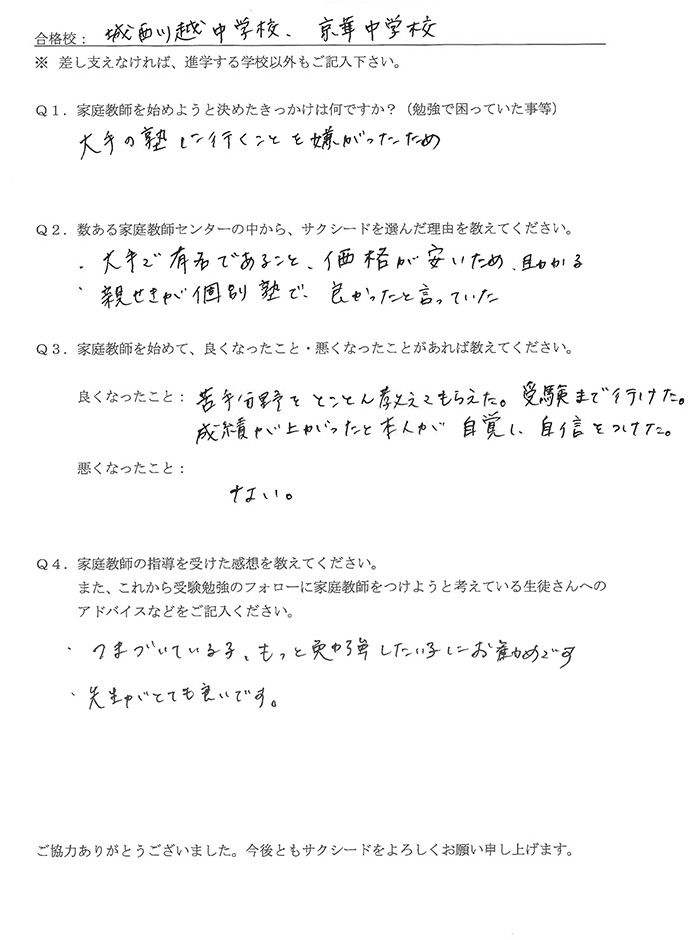 合格校： 城西川越中学校、 京華中学校
※ 差し支えなければ、進学する学校以外もご記入下さい。
Ｑ１．家庭教師を始めようと決めたきっかけは何ですか？（勉強で困っていた事等）
大手の塾に行くことを嫌がったため
Ｑ２．数ある家庭教師センターの中から、サクシードを選んだ理由を教えてください。
・大手で有名であること、価格が安いため、助かる
・親せきが個別塾で、良かったと言っていた
Ｑ３．家庭教師を始めて、良くなったこと・悪くなったことがあれば教えてください。
良くなったこと： 苦手分野をとことん教えてもらえた。受験まで行けた。
成績が上がったと本人が自覚し、自信をつけた。
悪くなったこと：
ない。
Ｑ４．家庭教師の指導を受けた感想を教えてください。
また、これから受験勉強のフォローに家庭教師をつけようと考えている生徒さんへの
アドバイスなどをご記入ください。
・つまづいている子、もっと勉強したい子にお勧めです
・先生がとても良いです。
ご協力ありがとうございました。今後ともサクシードをよろしくお願い申し上げます。